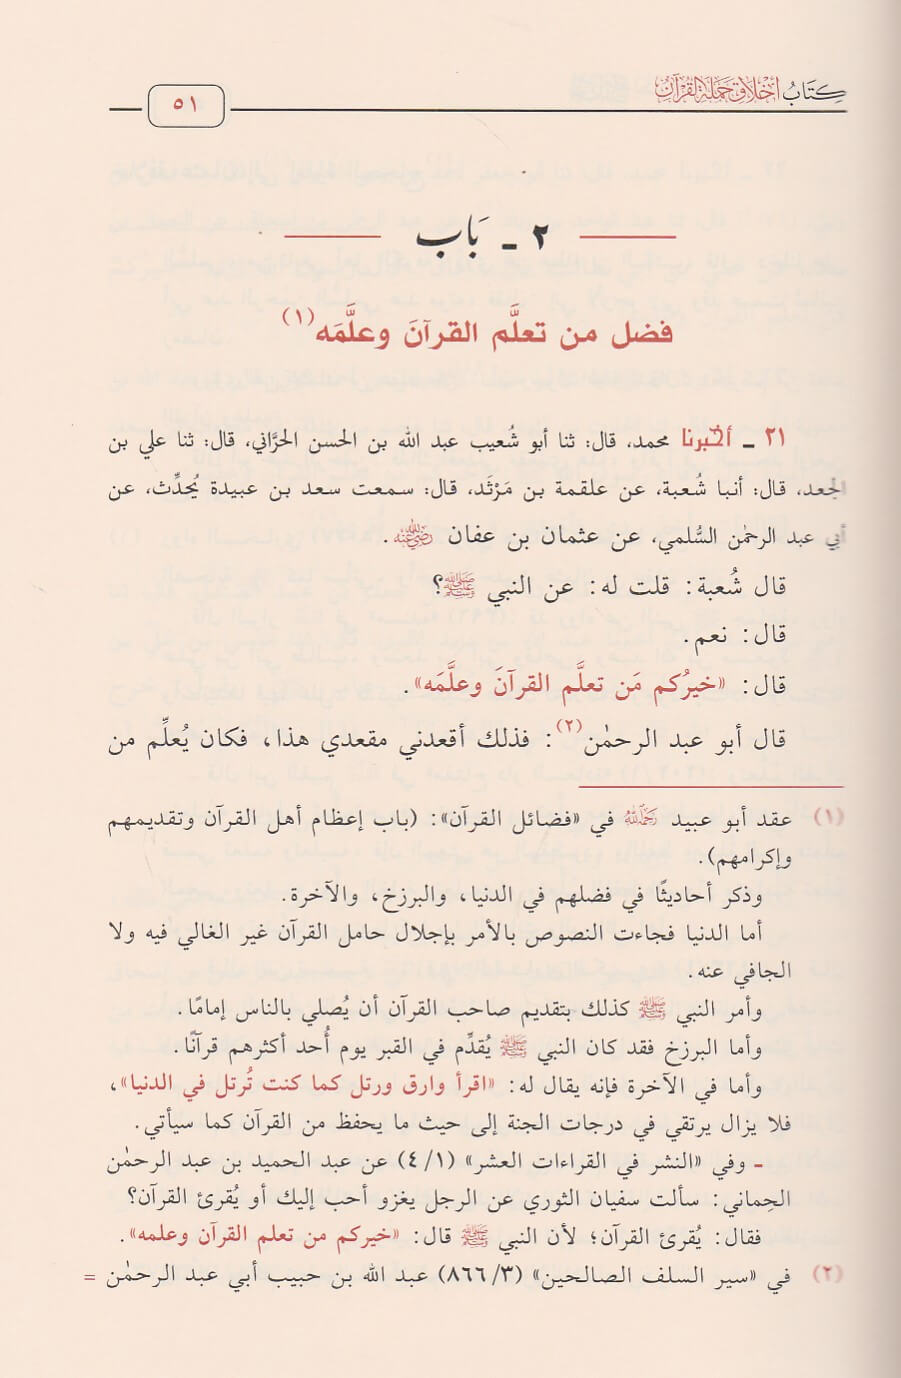 كِتَابُ أَخْلَاقِ حَمَلَةِ القُرْآنِ
٥١
٢ ـ بَاب
فضل من تعلَّم القرآنَ وعلَّمَه(١)
٢١ ـ أخبرنا محمد، قال: ثنا أبو شُعيب عبد الله بن الحسن الحرَّاني، قال: ثنا علي بن
الجعد، قال: أنبا شُعبة، عن علقمة بن مَرْثَد، قال: سمعت سعد بن عبيدة يُحدِّث، عن
أبي عبد الرحمٰن السُّلمي، عن عثمان بن عفان رضي الله عنه.
قال شُعبة: قلت له: عن النبي ﷺ؟
قال: نعم.
قال: «خيرُكم مَن تعلَّم القرآنَ وعلَّمَه».
قال أبو عبد الرحمٰن(٢): فذلك أقعدني مقعدي هذا، فكان يُعلِّم من
(١) عقد أبو عبيد رحمه الله في «فضائل القرآن»: (باب إعظام أهل القرآن وتقديمهم
وإكرامهم).
وذكر أحاديثًا في فضلهم في الدنيا، والبرزخ، والآخرة.
أما الدنيا فجاءت النصوص بالأمر بإجلال حامل القرآن غير الغالي فيه ولا
الجافي عنه.
وأمر النبي ﷺ كذلك بتقديم صاحب القرآن أن يُصلي بالناس إمامًا.
وأما البرزخ فقد كان النبي ﷺ يُقدِّم في القبر يوم أُحد أكثرهم قرآنًا.
وأما في الآخرة فإنه يقال له: «اقرأ وارق ورتل كما كنت تُرتل في الدنيا»،
فلا يزال يرتقي في درجات الجنة إلى حيث ما يحفظ من القرآن كما سيأتي.
ـ وفي «النشر في القراءات العشر» (٤/١) عن عبد الحميد بن عبد الرحمٰن
الحِماني: سألت سفيان الثوري عن الرجل يغزو أحب إليك أو يُقرئ القرآن؟
فقال: يُقرئ القرآن؛ لأن النبي ﷺ قال: «خيركم من تعلم القرآن وعلمه».
(٢) في «سير السلف الصالحين» (٨٦٦/٣) عبد الله بن حبيب أبي عبد الرحمٰن =